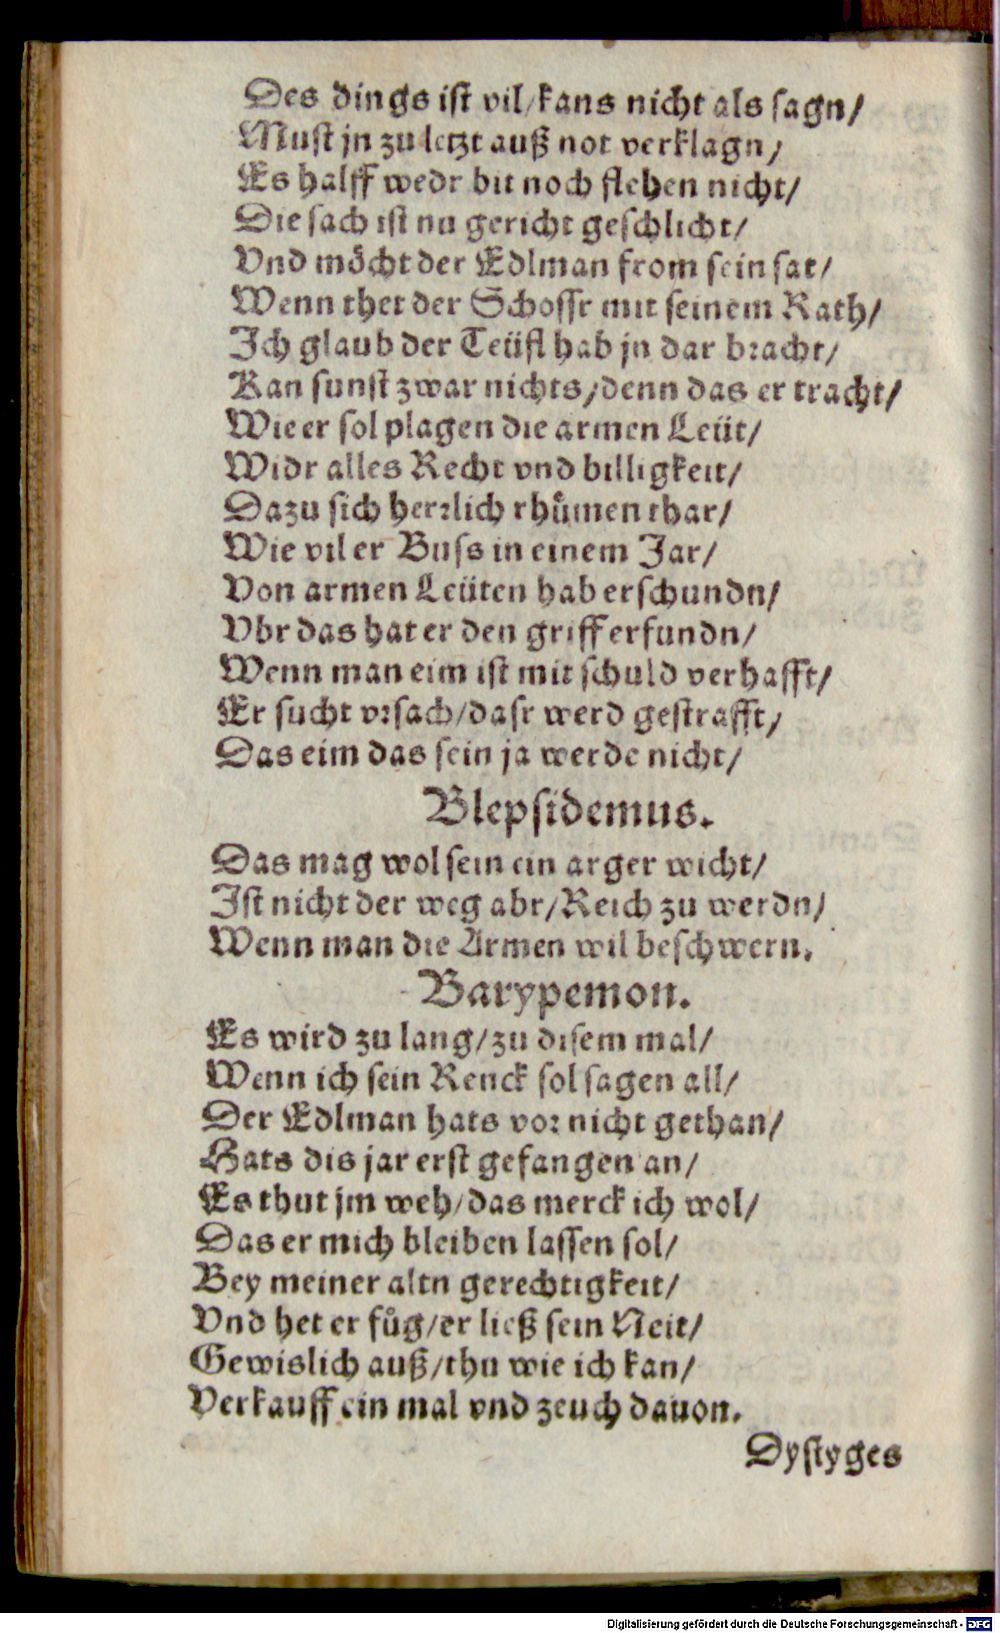 Des dings ist vil/kans nicht als sagn/
Must jn zu letzt auß not verklagn/
Es halff wedr bit noch flehen nicht/
Die sach ist nu gericht geschlicht/
Vnd möcht der Edlman from sein sat/
Wenn thet der Schossr mit seinem Rath/
Ich glaub der Teüfl hab jn dar bracht/
Kan sunst zwar nichts/denn das er tracht/
Wie er sol plagen die armen Leüt/
Widr alles Recht vnd billigkeit/
Dazu sich herrlich rhůmen thar/
Wie vil er Buss in einem Jar/
Von armen Leüten hab erschundn/
Vbr das hat er den griff erfundn/
Wenn man eim ist mit schuld verhafft/
Er sucht vrsach/dasr werd gestrafft/
Das eim das sein ja werde nicht/
Blepsidemus.
Das mag wol sein ein arger wicht/
Ist nicht der weg abr/Reich zu werdn/
Wenn man die Armen wil beschwern.
Barypemon.
Es wird zu lang/zu disem mal/
Wenn ich sein Renck sol sagen all/
Der Edlman hats vor nicht gethan/
Hats dis jar erst gefangen an/
Es thut jm weh/das merck ich wol/
Das er mich bleiben lassen sol/
Bey meiner altn gerechtigkeit/
Vnd het er fůg/er ließ sein Neit/
Gewislich auß/thu wie ich kan/
Verkauff ein mal vnd zeuch dauon.
Dystyges
Digitalisierung gefördert durch die Deutsche Forschungsgemeinschaft - DFG